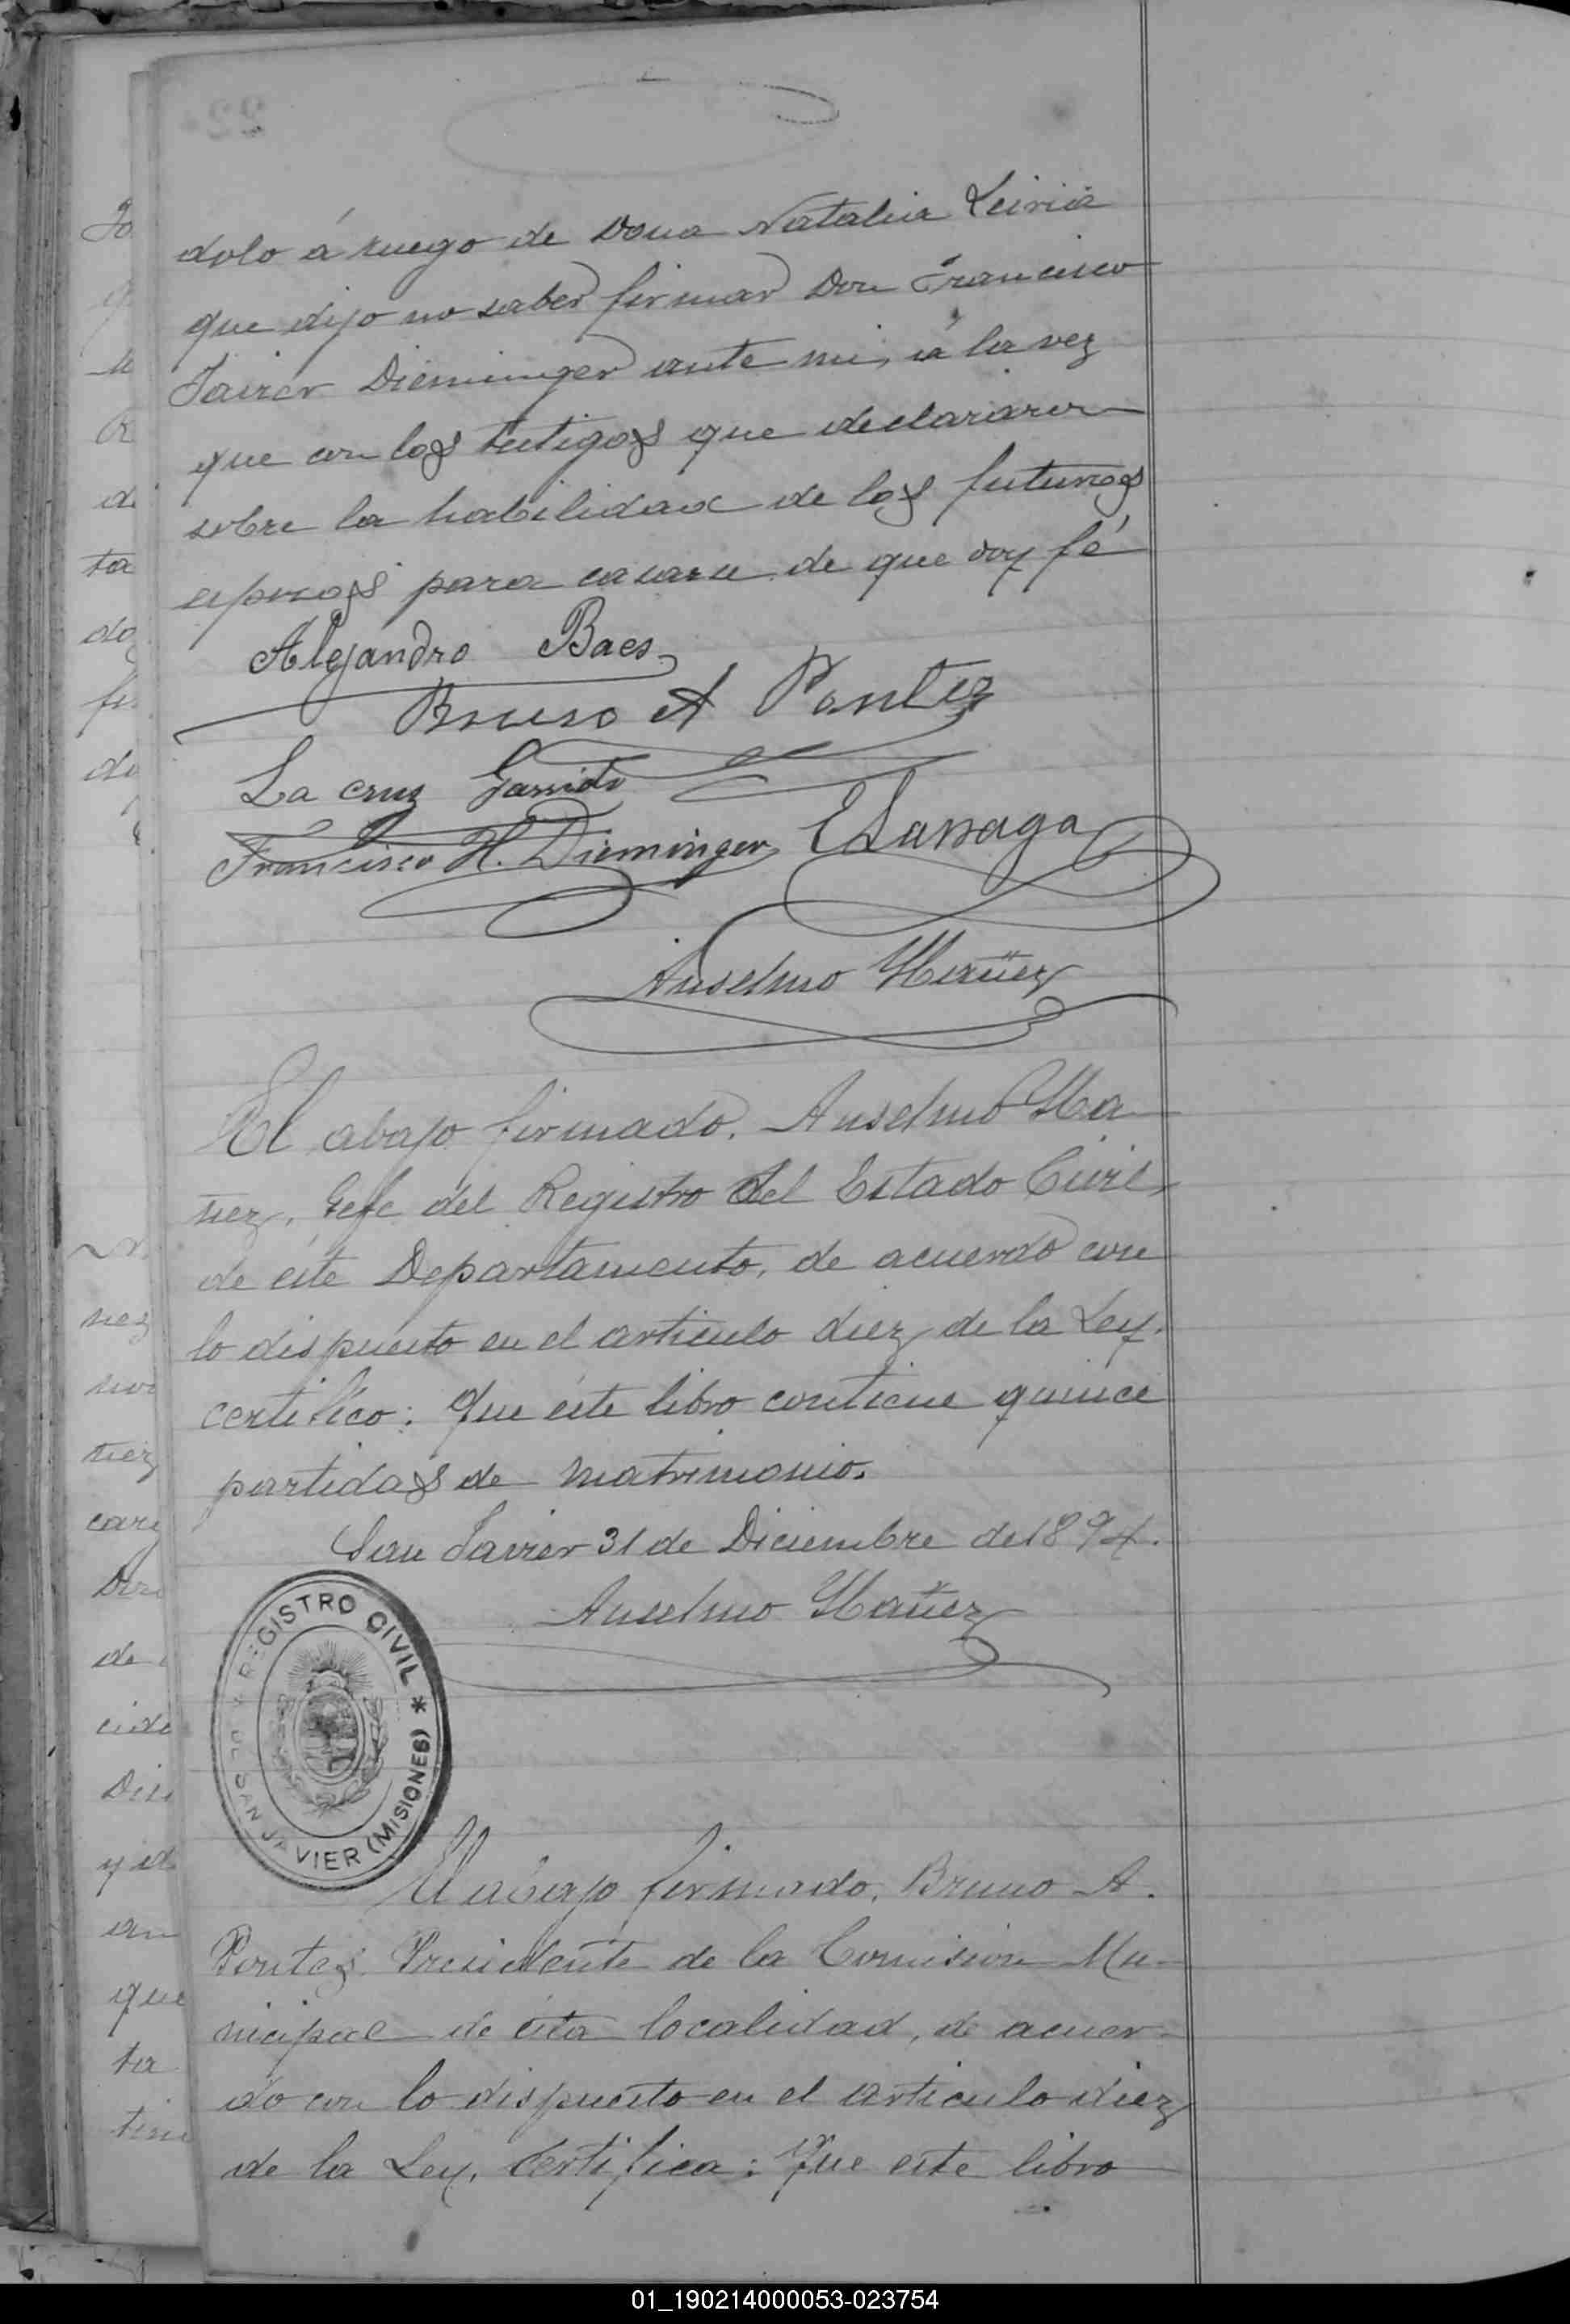 dolo á ruego de Dona Natalia Leiria
que dijo no saber firmar Don Francisco
Javier Dieminger ante mi, á la vez
que con los testigos que declararon
sobre la habilidad de los futuros
esposos para casarse de que doy fé
Alejandro Baes
Bruno A Pontes
La cruz Garrido
Francisco H. Dieminger ELarraga
Anselmo
El abajo firmado, Anselmo
ñez, Gefe del Registro del Estado Civil,
de éste Departamento, de acuerdo con
lo dispuesto en el articulo diez de la Ley.
certifico: Que éste libro contiene quince
partidas de matrimonio.
San Javier 31 de Diciembre de 1894.
Anselmo
REGISTRO CIVIL * SAN JAVIER (MISIONES)
El abajo firmado, Bruno A.
Pontes, Presidente de la Comision Mu-
nicipal de ésta localidad, de acuer-
do con lo dispuesto en el articulo diez
de la Ley, Certifica: Que este libro
01_190214000053-023754